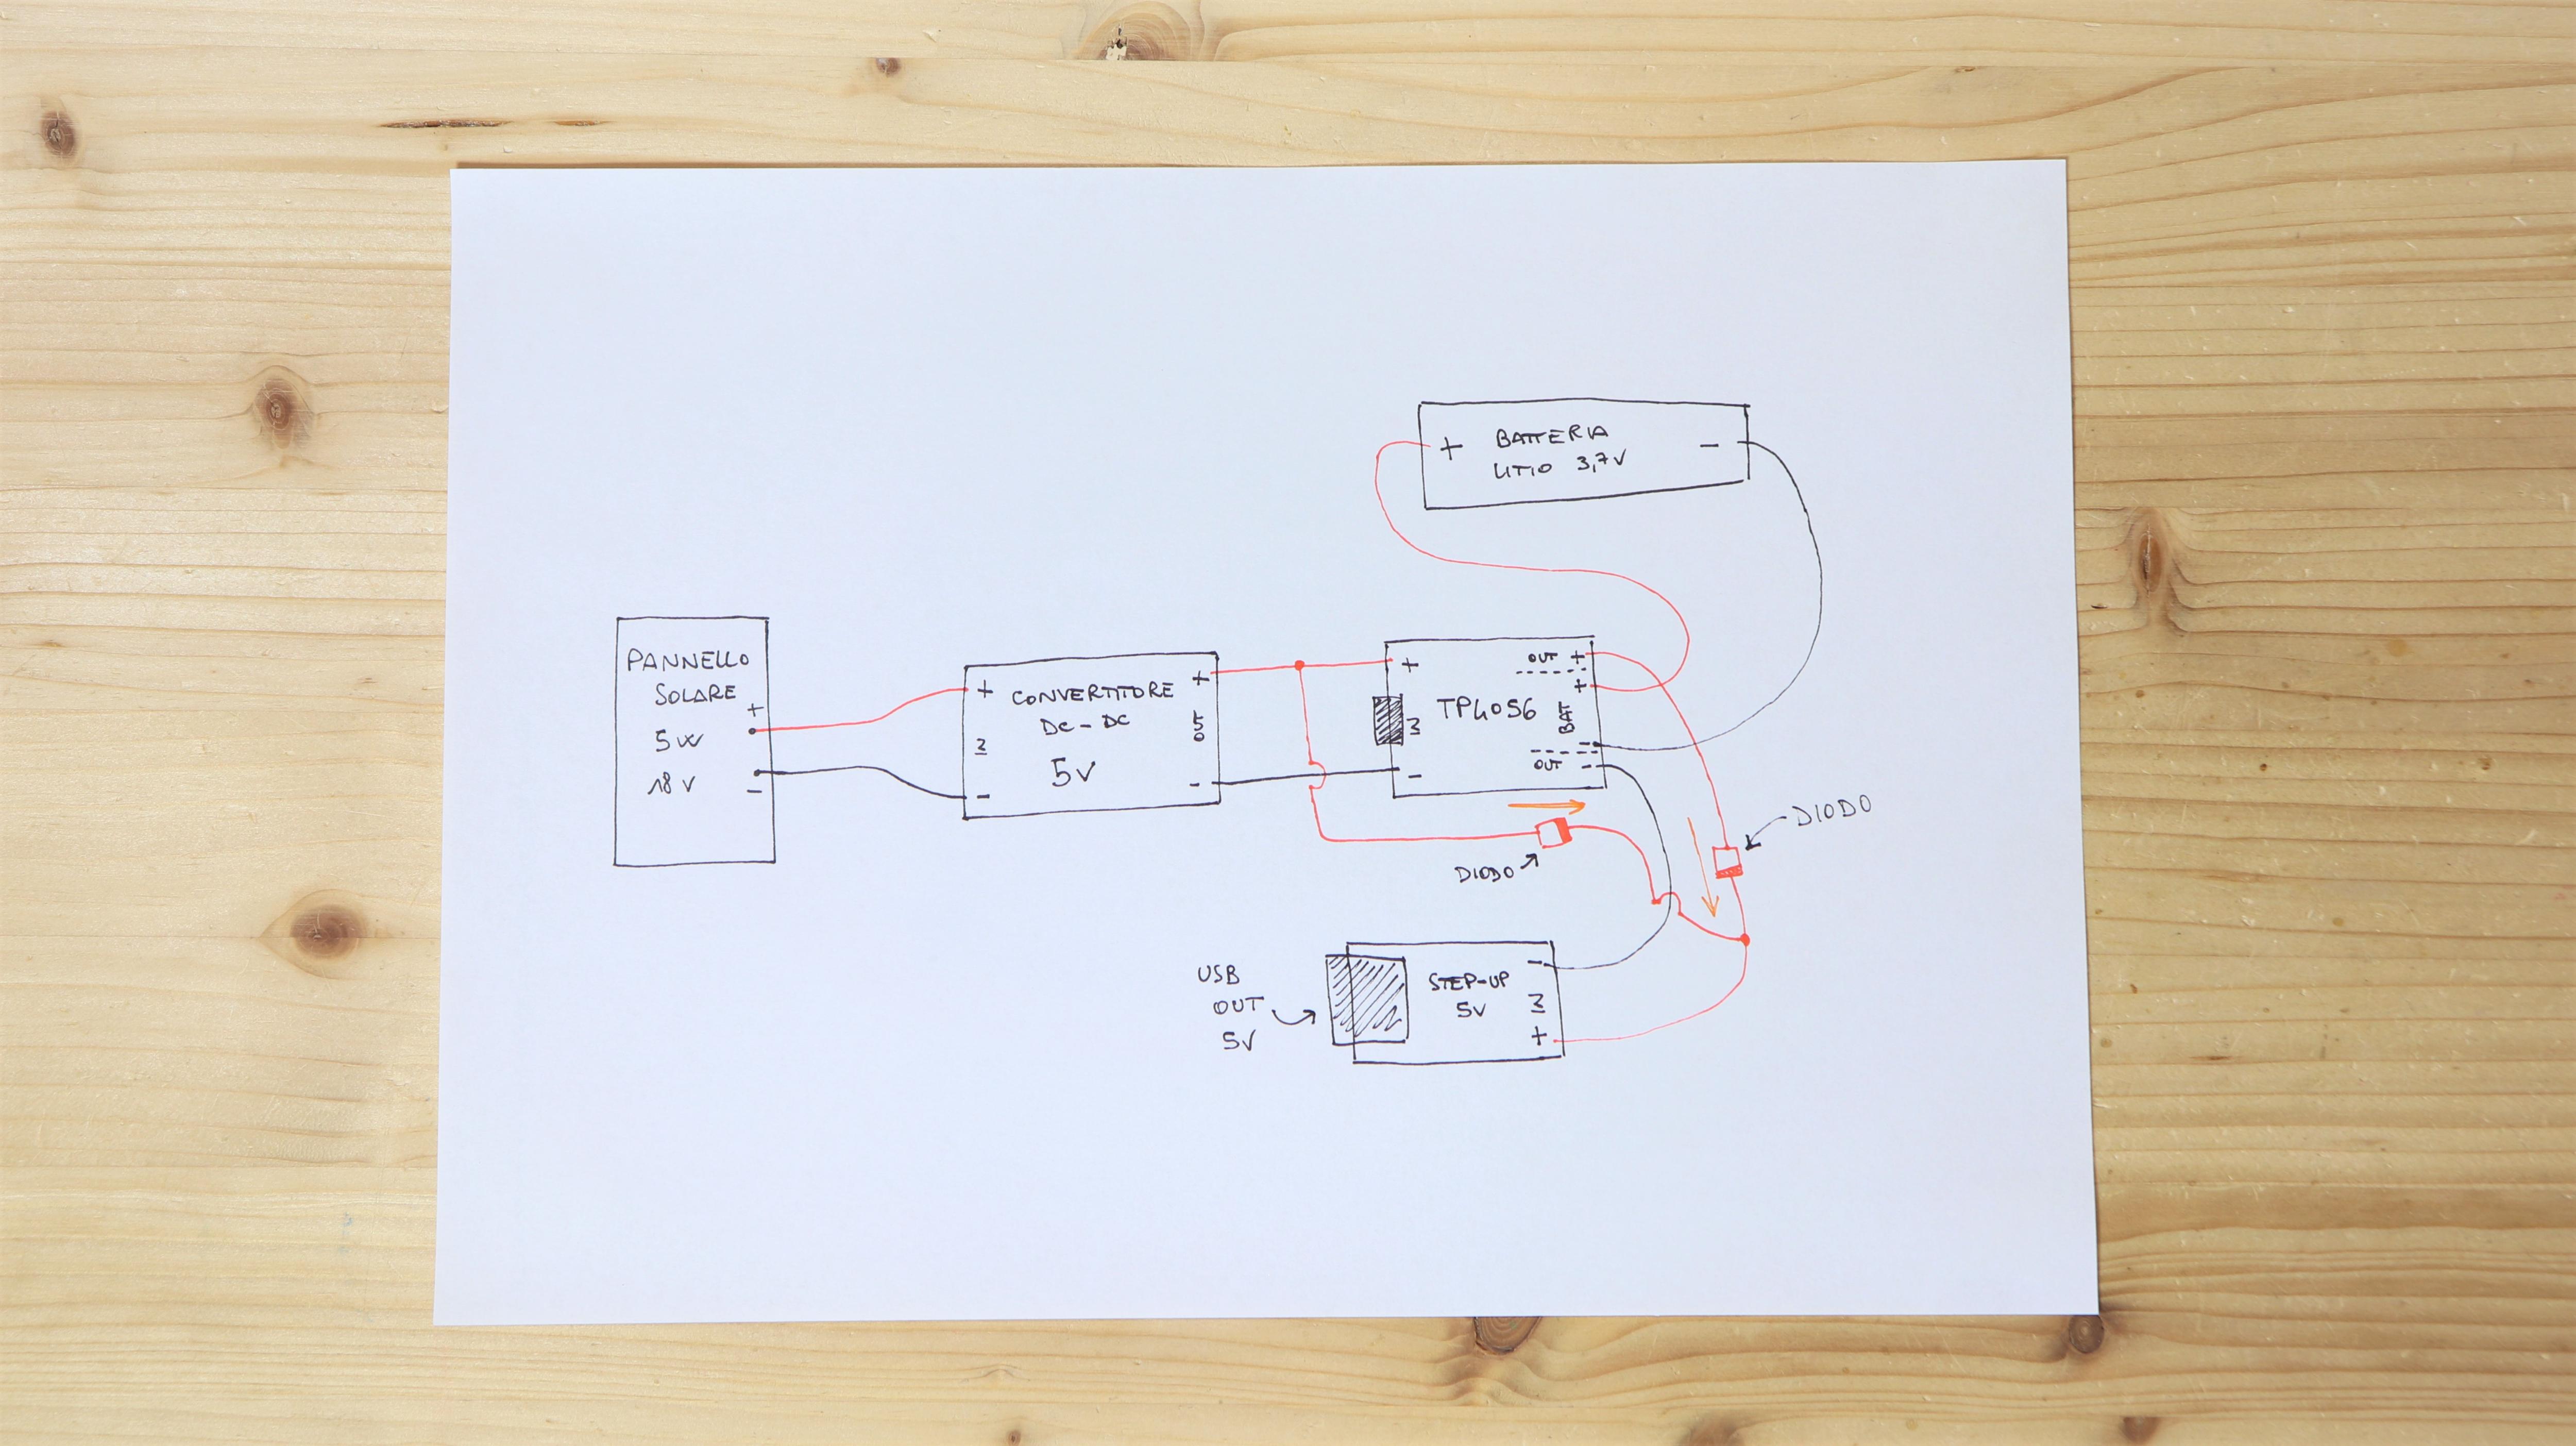 BATTERIA
+ -
LITIO 3,7V
PANNELLO
SOLARE
+
5W
18V
-
+ CONVERTITORE +
DC-DC
IN OUT
5V
- -
+ OUT +
+
TP4056
IN BAT
-
- OUT -
DIODO
DIODO
USB
OUT
5V
STEP-UP -
5V IN
+